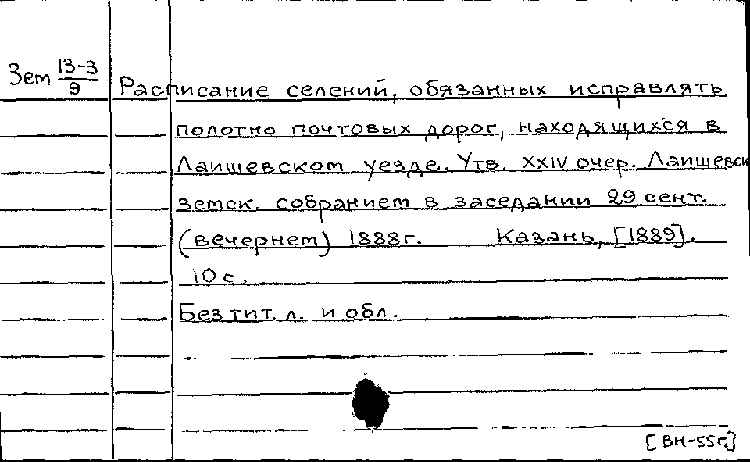 Зем 13-3/9
Расписание селений, обязанных исправлять
полотно почтовых дорог, находящихся в
Лаишевском уезде. Утв. XXIV очер. Лаишевск
земск. собранием в заседании 29 сент.
(вечернем) 1888г. Казань, [1889].
10 с.
Без тит. л. и обл.
[ВН-55г]